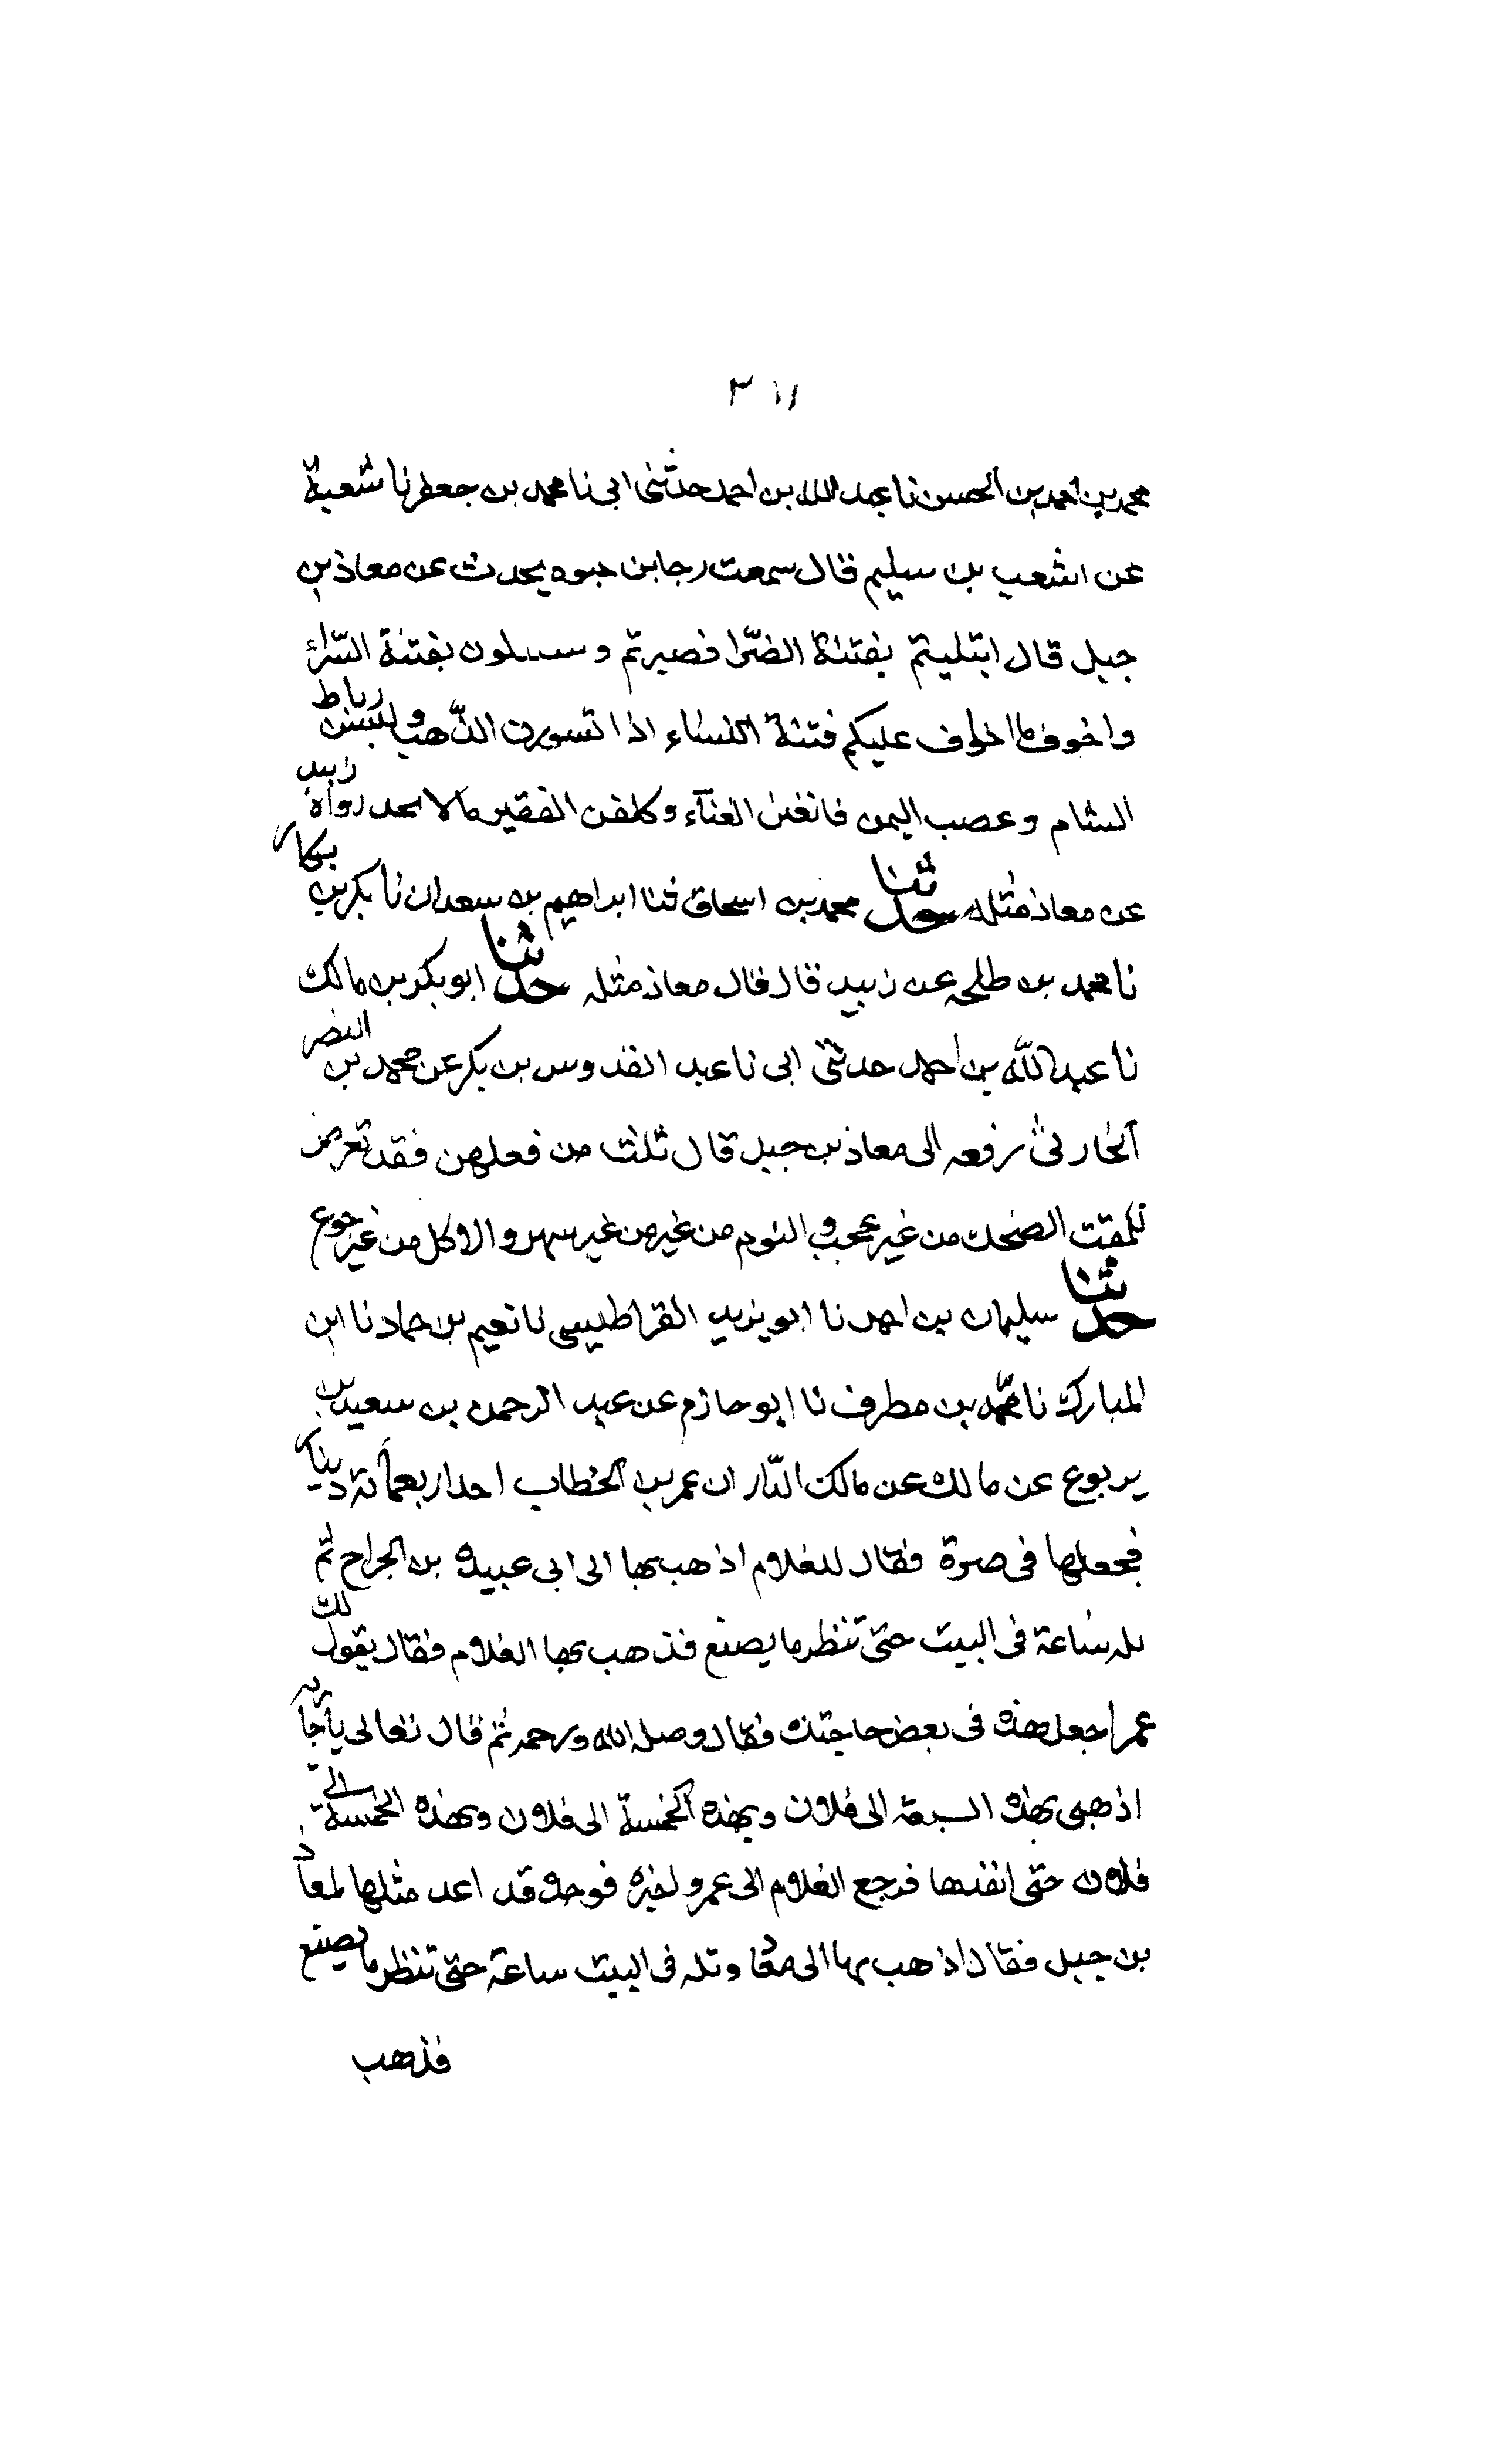 ٣١١
محمد بن احمد بن الحسن نا عبد الله بن احمد حدثنى ابى نا محمد بن جعفر نا شعبة
عن اشعب بن سليم قال سمعت رجا بن حيوه يحدث عن معاذ بن
جبل قال ابتليتم بفتنة الضرّا فصبرتم وستبلون بفتنة السّرائ
واخوف ما اخاف عليكم فتنة النساء اذا تسورن الذّهب ولبسن رياط
الشام وعصب اليمن فاتعبن الغنآء وكلفن الفقير مالا يجد رواه زبيد
عن معاذ مثله حدثنا محمد بن اسحاق ثنا ابراهيم بن سعدان نا بكر بن بكار
نا محمد بن طلحه عن زبيد قال قال معاذ مثله حدثنا ابو بكر بن مالك
نا عبد الله بن احمد حدثنى ابى نا عبد القدوس بن بكر عن محمد بن النضر
الحارثى رفعه الى معاذ بن جبل قال ثلث من فعلهن فقد تعرض
للمقت الضحك من غير عجب والنوم من غير من غير سهر والاوكل من غير جوع
حدثنا سليمان بن احمد نا ابو يزيد القراطيسى نا نعيم بن حماد نا ابن
المبارك نا محمّد بن مطرف نا ابو حازم عن عبد الرحمن بن سعيد بن
يربوع عن مالك عن مالك الدّار ان عمر بن الخطاب اخذ اربعمائة دينار
فجعلها فى صرة فقال للغلام اذهب بها الى ابى عبيده بن الجراح ثم
تله ساعة فى البيت حتى تنظر ما يصنع فذهب بها الغلام فقال يقول لك
عمر اجعل هذه فى بعض حاجتك فقال وصله الله ورحمه ثم قال تعالى يا جارية
اذهبى بهذه السبعة الى فلان وبهذه الخمسة الى فلان وبهذه الخمسة الى
فلان حتى انفذها فرجع الغلام الى عمر واخبره فوجده قد اعد مثلها لمعاذ
بن جبل فقال اذهب بها الى معاذ وتله فى البيت ساعة حتى تنظر ما يصنع
فذهب